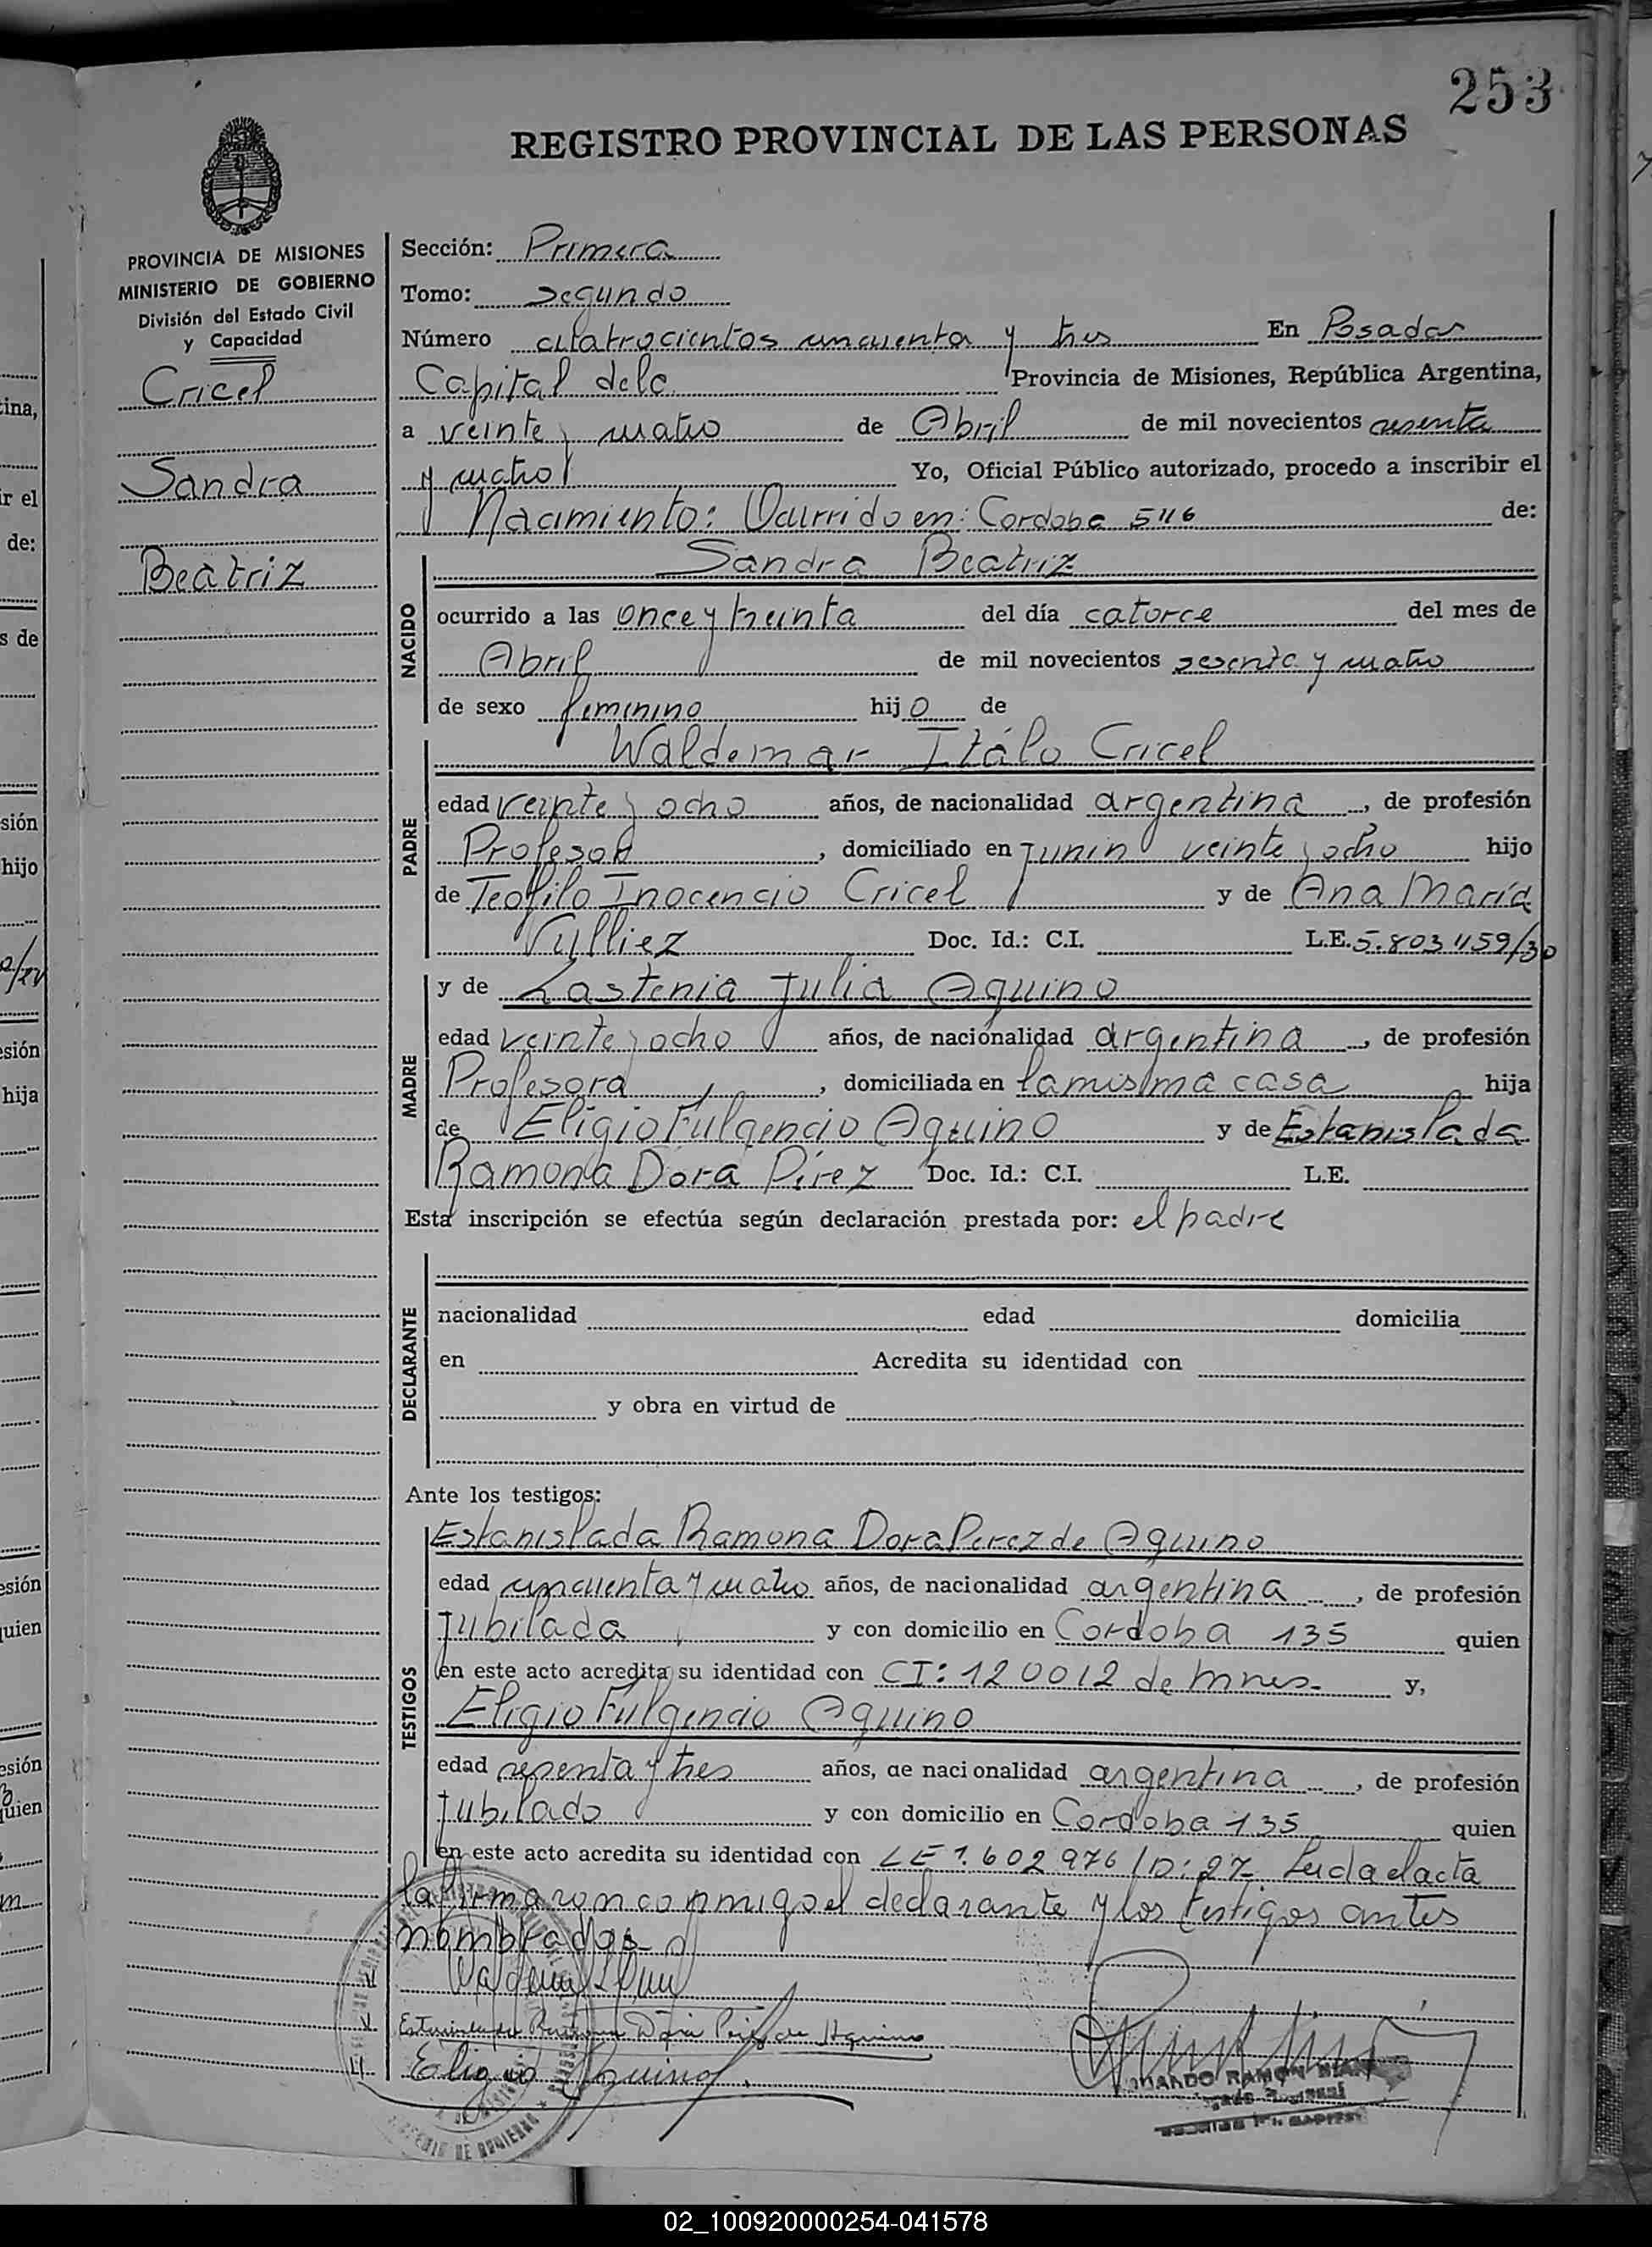 253
REGISTRO PROVINCIAL DE LAS PERSONAS
PROVINCIA DE MISIONES
MINISTERIO DE GOBIERNO
División del Estado Civil
y Capacidad
Cricel
Sandra
Beatriz
Sección: Primera
Tomo: segundo
Número cuatrocientos cincuenta y tres En Posadas
Capital dela Provincia de Misiones, República Argentina,
a veinte y cuatro de Abril de mil novecientos sesenta
y cuatro Yo, Oficial Público autorizado, procedo a inscribir el
Nacimiento: Ocurrido en: Cordoba de:
NACIDO
Sandra Beatriz
ocurrido a las once y treinta del día catorce del mes de
Abril de mil novecientos sesenta y cuatro
de sexo femenino hijo de
PADRE
Waldemar Itálo Cricel
edad veinte y ocho años, de nacionalidad argentina, de profesión
Profesor, domiciliado en Junin veinte y ocho hijo
de Teofilo Inocencio Cricel y de Ana María
Vulliez Doc. Id.: C.I. L.E.
MADRE
y de Lastenia Julia Aquino
edad veinte y ocho años, de nacionalidad argentina, de profesión
Profesora, domiciliada en la misma casa hija
de Eligio Fulgencio Aquino y de Estanislada
Ramona Dora Pérez Doc. Id.: C.I. L.E.
Esta inscripción se efectúa según declaración prestada por: el padre
DECLARANTE
nacionalidad edad domicilia
en Acredita su identidad con
y obra en virtud de
Ante los testigos:
TESTIGOS
Estanislada Ramona Dora Perez de Aquino
edad cincuenta y cuatro años, de nacionalidad argentina, de profesión
Jubilada y con domicilio en Cordoba 135 quien
en este acto acredita su identidad con CI: 120012 de Mnes. y,
Eligio Fulgencio Aquino
edad sesenta y tres años, de nacionalidad argentina, de profesión
Jubilado y con domicilio en Cordoba 135 quien
en este acto acredita su identidad con LE 1.602976/D:27. Leida el acta
la firmaron conmigo el declarante y los testigos antes
nombrados
Estanislada Ramona Dora Perez de Aquino
Eligio Aquino
02_100920000254-041578